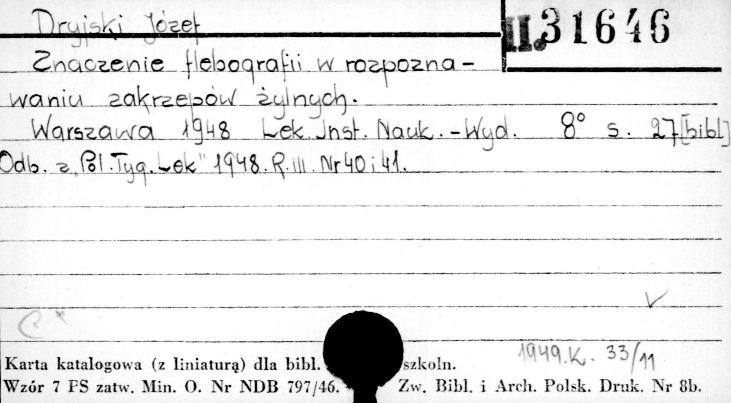 Dryjski Józef
II. 31646
Znaczenie flebografii w rozpozna-
waniu zakrzepów żylnych.
Warszawa 1948 Lek. Inst. Nauk.-Wyd. 8° s. 27 [bibl]
Odb. z „Pol. Tyg. Lek" 1948. R. III. Nr 40 i 41.
1949.K. 33/11
Karta katalogowa (z liniaturą) dla bibl. szkoln.
Wzór 7 PS zatw. Min. O. Nr NDB 797/46. Zw. Bibl. i Arch. Polsk. Druk. Nr 8b.